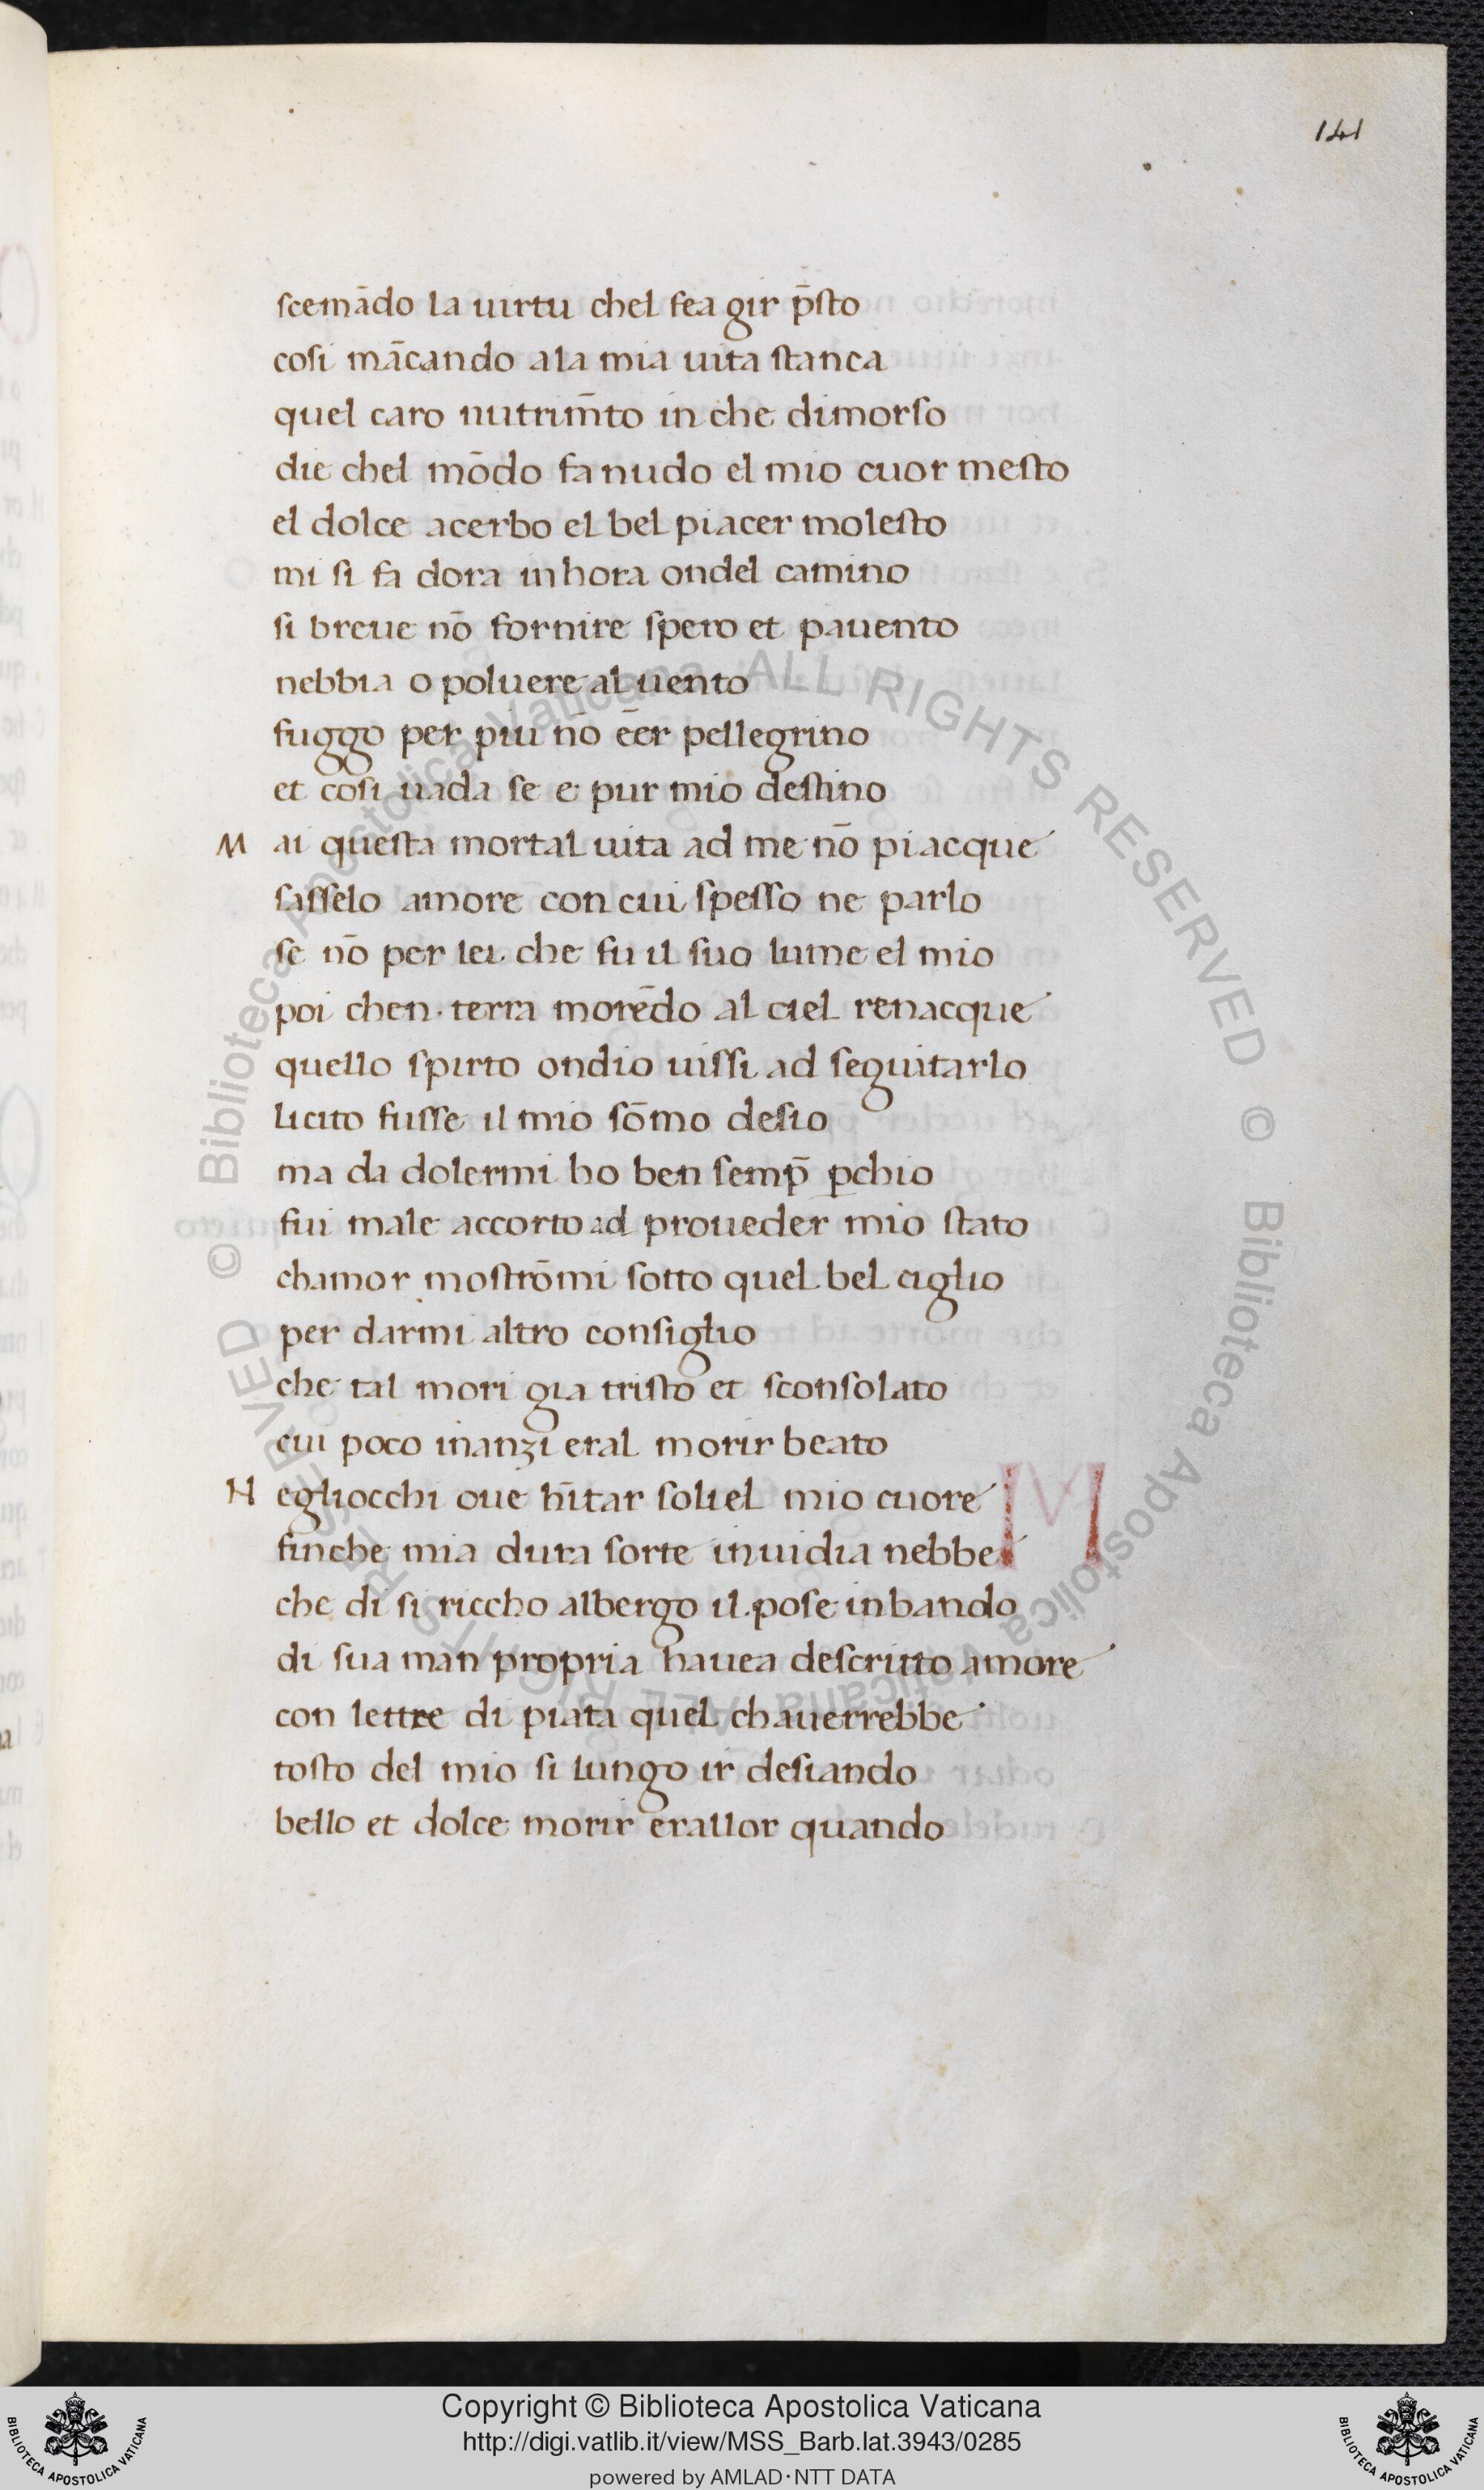 141
scemādo la uirtu chel fea gir p̄sto
cosi mācando ala mia uita stanca
quel caro nutrim̄to in che dimorso
die chel mōdo fa nudo el mio cuor mesto
el dolce acerbo el bel piacer molesto
mi si fa dora inhora ondel camino
si breue nō fornire spero et pauento
nebbia o poluere al uento
fuggo per piu nō ēer pellegrino
et cosi uada se e pur mio destino
M ai questa mortal uita ad me nō piacque
sasselo amore con cui spesso ne parlo
se nō per lei che fu il suo lume el mio
poi chen terra morēdo al ciel renacque
quello spirto ondio uissi ad seguitarlo
licito fusse il mio sōmo desio
ma da dolermi ho ben semp̄ ꝑchio
fui male accorto ad proueder mio stato
chamor mostrōmi sotto quel bel ciglio
per darmi altro consiglio
che tal mori gia tristo et sconsolato
cui poco inanzi eral morir beato
N egliocchi oue h̄itar soliel mio cuore
finche mia dura sorte inuidia nebbe
che di si riccho albergo il pose inbando
di sua man propria hauea descritto amore
con lettre di piata quel chauerrebbe
tosto del mio si lungo ir desiando
bello et dolce morir erallor quando
© Biblioteca Apostolica Vaticana ALL RIGHTS RESERVED © Biblioteca Apostolica Vaticana ALL RIGHTS RESERVED
BIBLIOTECA APOSTOLICA VATICANA
Copyright © Biblioteca Apostolica Vaticana
http://digi.vatlib.it/view/MSS_Barb.lat.3943/0285
powered by AMLAD·NTT DATA
BIBLIOTECA APOSTOLICA VATICANA